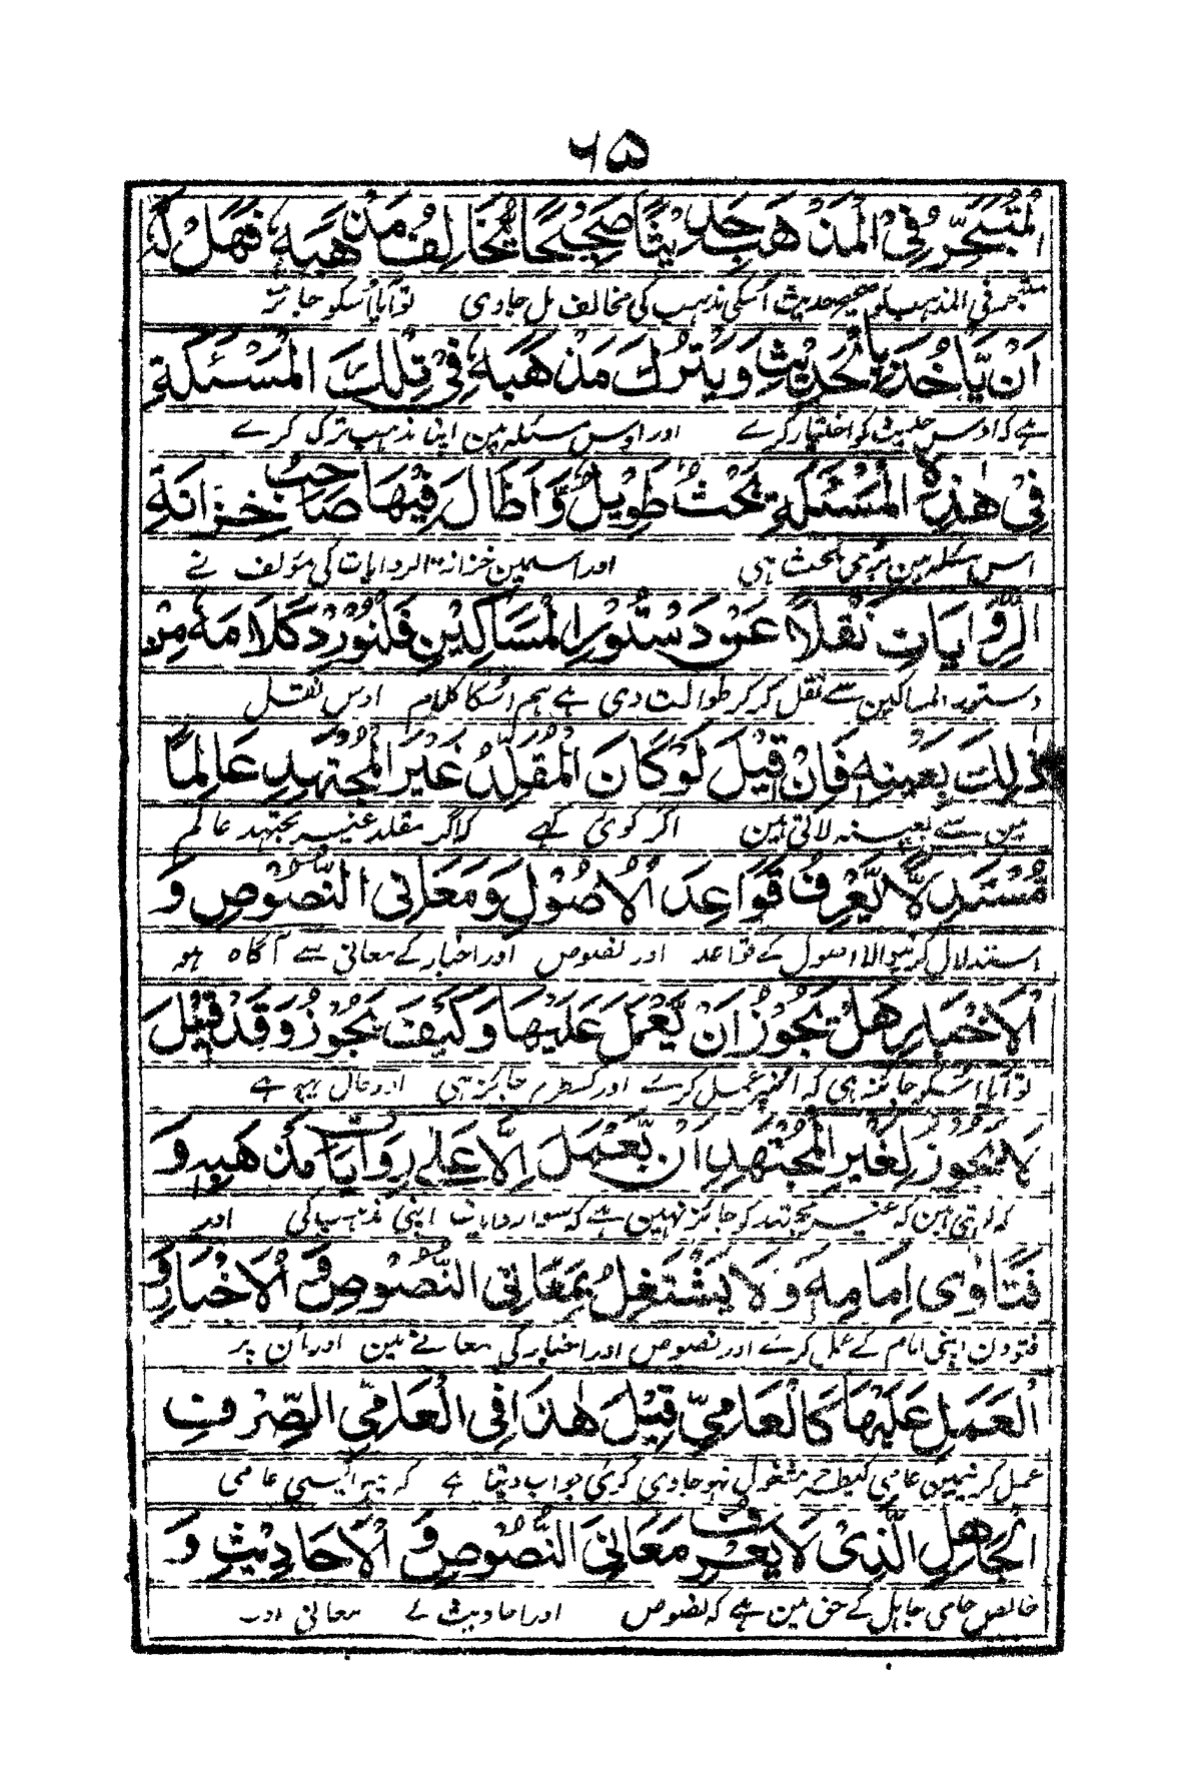 ۶۵
الْمُتَبَحِّرُ فِي الْمَذْهَبِ حَدِيْثًا صَحِيْحًا يُخَالِفُ مَذْهَبَهٗ فَهَلْ لَهٗ
متبحر فی المذہب کو صحیح حدیث اُسکی مذہب کی مخالف مل جاوی تو آیا اُسکو جائز
اَنْ يَّاخُذَ بِالْحَدِيْثِ وَيَتْرُكَ مَذْهَبَهٗ فِيْ تِلْكَ الْمَسْئَلَةِ
ہے کہ اوس حدیث کو اختیار کرے اور اوس مسئلہ مین اپنا مذہب ترک کرے
فِيْ هٰذِهِ الْمَسْئَلَةِ بَحْثٌ طَوِيْلٌ وَاَطَالَ فِيْهَا صَاحِبُ خِزَانَةِ
اس مسئلہ مین بڑی بحث ہی اور اسمین خزانۃ الروایات کی مؤلف نے
الرِّوَايَاتِ نَقْلًا عَنْ دَسْتُوْرِ الْمَسَاكِيْنِ فَلْنُوْرِدْ كَلَامَهٗ مِنْ
دستور المساکین سے نقل کر کر طوالت دی ہے ہم اُسکا کلام اوس نقل
ذٰلِكَ بِعَيْنِهٖ فَاِنْ قِيْلَ لَوْ كَانَ الْمُقَلِّدُ غَيْرَ الْمُجْتَهِدِ عَالِمًا
مین سے بعینہ لاتی ہین اگر کوئی کہے کہ اگر مقلد غیر مجتہد عالم
مُسْتَدِلًّا يَّعْرِفُ قَوَاعِدَ الْاُصُوْلِ وَمَعَانِيَ النُّصُوْصِ وَ
استدلال کرنیوالا اصول کے قواعد اور نصوص اور اخبار کے معانی سے آگاہ ہو
الْاَخْبَارِ هَلْ يَجُوْزُ اَنْ يَّعْمَلَ عَلَيْهَا وَكَيْفَ يَجُوْزُ وَقَدْ قِيْلَ
تو آیا اُسکو جائز ہی کہ انپر عمل کرے اور کسطرح جائز ہی اور حال یہ ہے
لَا يَجُوْزُ لِغَيْرِ الْمُجْتَهِدِ اَنْ يَّعْمَلَ اِلَّا عَلٰى رِوَايَاتِ مَذْهَبِهٖ وَ
کہ غیر مجتہد کو جائز نہین ہے کہ سوا روایات اپنی مذہب کی اور
فَتَاوٰى اِمَامِهٖ وَلَا يَشْتَغِلُ بِمَعَانِي النُّصُوْصِ وَالْاَخْبَارِ وَ
فتوون اپنی امام کے عمل کرے اور نصوص اور اخبار کی معانے مین اور اُن پر
الْعَمَلِ عَلَيْهَا كَالْعَامِيِّ قِيْلَ هٰذَا فِي الْعَامِيِّ الصِّرْفِ
عمل کرنیمین عامی کیطرح مشغول نہو جاوی کوئی جواب دیتا ہے کہ یہ ایسی عامی
الْجَاهِلِ الَّذِيْ لَا يَعْرِفُ مَعَانِيَ النُّصُوْصِ وَالْاَحَادِيْثِ وَ
خالص جاہل کے حق مین ہے کہ نصوص اور احادیث کے معانی اور